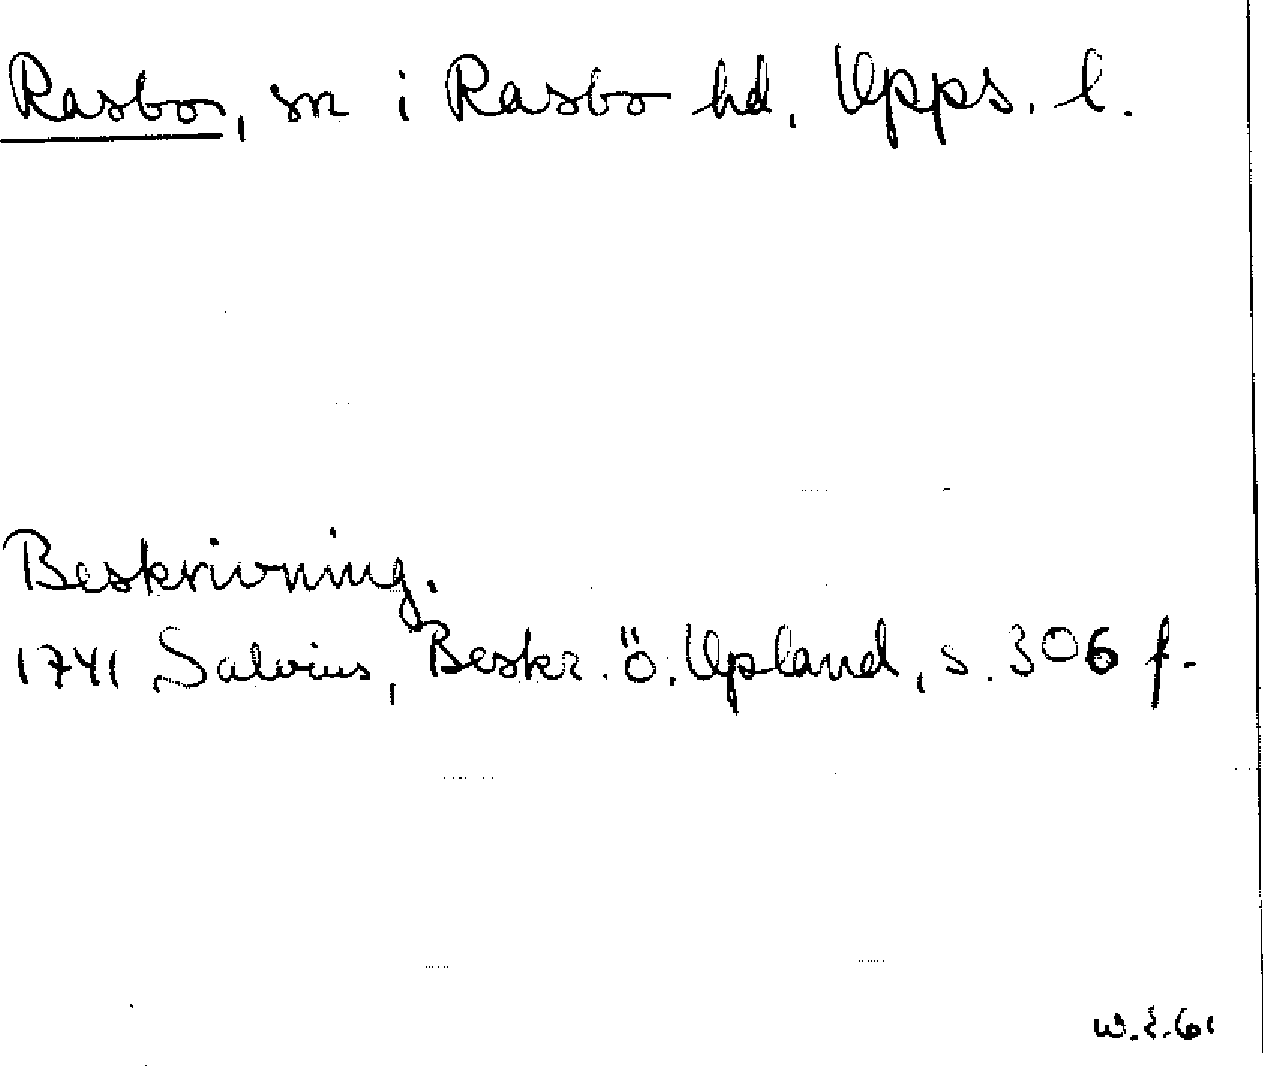 Rasbo, sn i Rasbo hd. Upps. l.
Beskrivning.
1741 Salvius, Beskr. ö. Upland, s. 306 f.